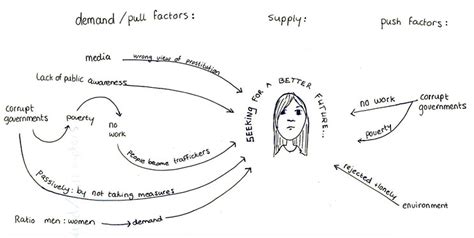 demand / pull factors:
supply:
push factors:
media
wrong view of prostitution
Lack of public awareness
SEEKING FOR A BETTER FUTURE...
no work
corrupt governments
corrupt
governments
poverty
no
work
poverty
people become traffickers
rejected + lonely
environment
Passively: by not taking measures
Ratio men : women
demand